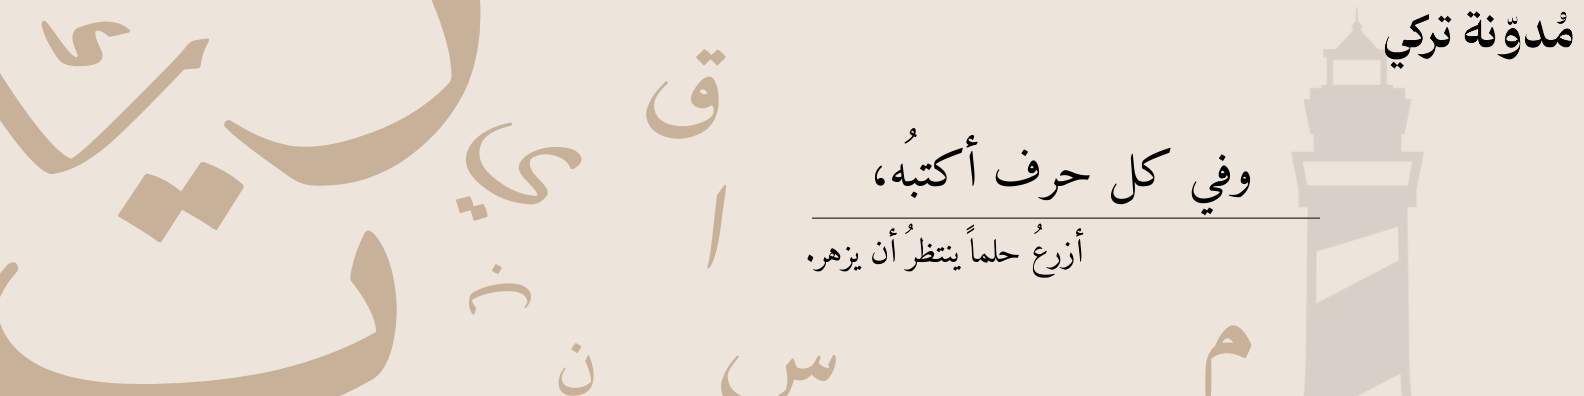 مُدوّنة تركي
وفي كل حرف أكتبُه،
أزرعُ حلماً ينتظرُ أن يزهر.
ق
ي
ا
ن
س
م
ت